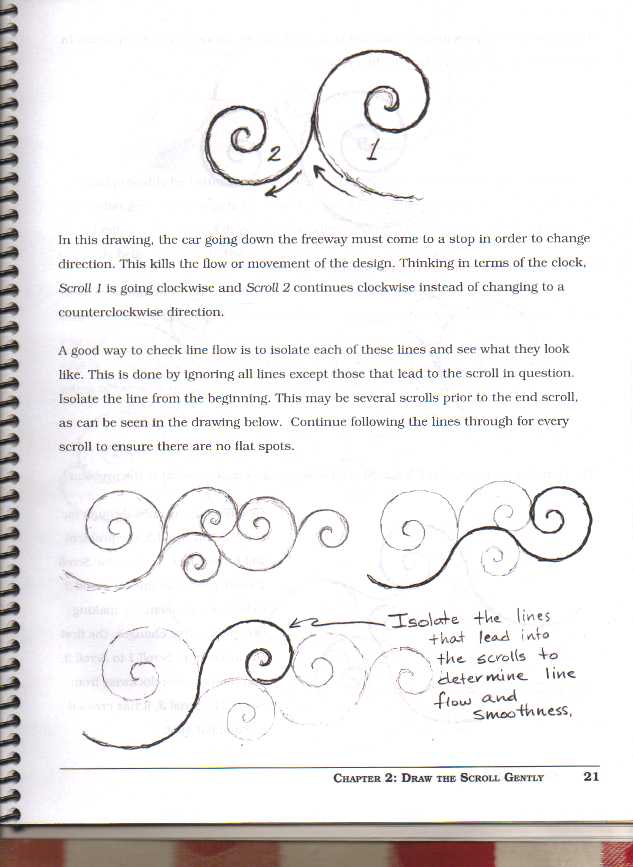 2
1
In this drawing, the car going down the freeway must come to a stop in order to change
direction. This kills the flow or movement of the design. Thinking in terms of the clock,
Scroll 1 is going clockwise and Scroll 2 continues clockwise instead of changing to a
counterclockwise direction.
A good way to check line flow is to isolate each of these lines and see what they look
like. This is done by ignoring all lines except those that lead to the scroll in question.
Isolate the line from the beginning. This may be several scrolls prior to the end scroll,
as can be seen in the drawing below.  Continue following the lines through for every
scroll to ensure there are no flat spots.
Isolate the lines
that lead into
the scrolls to
determine line
flow and
smoothness.
CHAPTER 2: DRAW THE SCROLL GENTLY 21